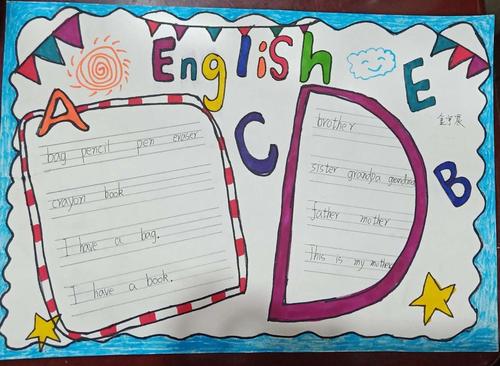 English
A
bag pencil pen eraser
crayon book
I have a bag.
I have a book.
C
D
brother
sister grandpa grandma
father mother
This is my mother
E
B